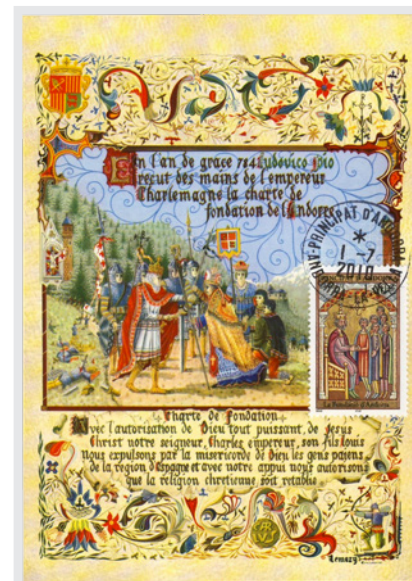 En l'an de grace 784 Ludovico pio
reçut des mains de l'empereur
Charlemagne la charte de
fondation de l'Andorre
PRINCIPAT D'ANDORRA
*
1 -7
2010
La Fundació d'Andorra
Charte de fondation
Avec l'autorisation de Dieu tout puissant, de Jesus
Christ notre seigneur, Charles empereur, son fils Louis
Nous expulsons par la misericorde de Dieu les gens paiens
de la région d'Espagne et avec notre appui nous autorisons
que la religion chretienne soit retablie